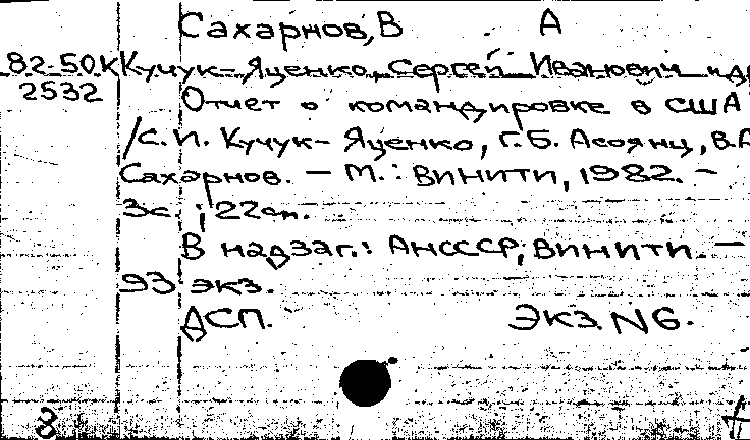 Сахарнов, В А
82-50К Кучук-Яценко, Сергей Иванович и др
2532 Отчет о командировке в США
/С.И. Кучук-Яценко, Г.Б. Асоянц, В.А
Сахарнов. — М.: ВИНИТИ, 1982. —
3с. ; 22см.
В надзаг.: АНСССР, ВИНИТИ. —
93 экз.
ДСП. Экз. N6.